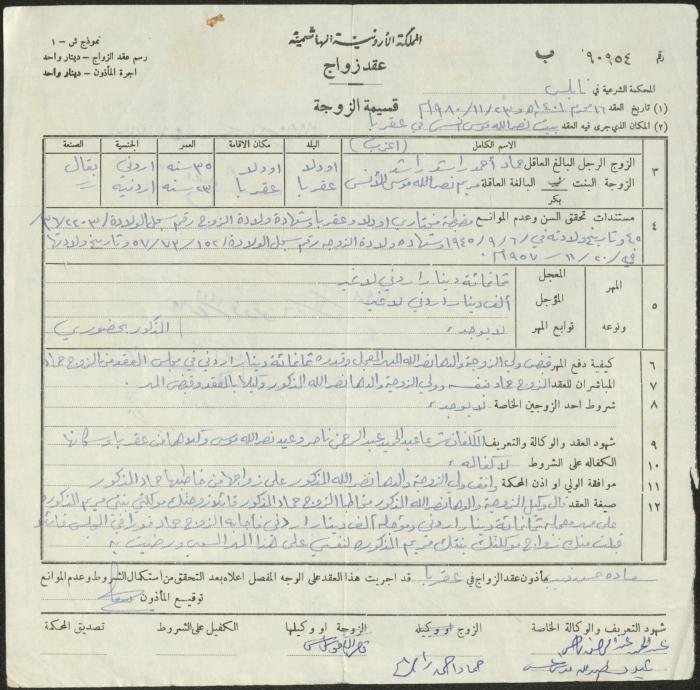 المملكة الأردنية الهاشمية
نموذج ش - ١
رسم عقد الزواج - دينار واحد
اجرة المأذون - دينار واحد
عقد زواج
رقم ٩٠٩٥٤ ب
المحكمة الشرعية في نابلس
قسيمة الزوجة
(١) تاريخ العقد ١٦ محرم ١٤٠١هـ و ٢٣/١١/١٩٨٠م
(٢) المكان الذي جرى فيه العقد بيت نصرالله موسى في عقربا
الاسم الكامل (اعزب) البلد مكان الاقامة العمر الجنسية الصنعة
٣ الزوج الرجل البالغ العاقل حماد احمد راشد راشد اودلا اودلا ٣٥ سنه اردني بقال
الزوجة البنت ثيب البالغة العاقلة مريم نصرالله موسى عقربا عقربا ٢٣ سنه اردنية
بكر
٤ مستندات تحقق السن وعدم الموانع مضبطة مختاري اودلا وعقربا وشهادة ولادة الزوج رقم سجل الولادة
٤٥ وتاريخ ولادته في ٦/٩/١٩٤٥ وشهادة ولادة الزوجه رقم سجل الولادة ١٥٢/٧٣/٥٧ وتاريخ ولادتها
في ٢٠/١١/١٩٥٧م
٥ المهر المعجل ثمانمائة دينار اردني لا غير
المؤجل ألف دينار اردني لا غير
ونوعه توابع المهر لا يوجد المذكور بحضوري
٦ كيفية دفع المهر قبض ولي الزوجة والدها نصرالله المهر المعجل وقدره ثمانمائة دينار اردني في مجلس العقد من الزوج حماد
٧ المباشران للعقد الزوج حماد نفسه وولي الزوجة والدها نصرالله المذكور وكيلا بالعقد وقبض المهر
٨ شروط احد الزوجين الخاصة لا يوجد
٩ شهود العقد والوكالة والتعريف المكلفان شرعا عبدالحميد عبدالرحمن ناصر وعيد نصرالله موسى وكلاهما من عقربا وسكانها
١٠ الكفاله على الشروط لا كفاله
١١ موافقة الولي او اذن المحكمة وافق ولي الزوجة والدها نصرالله المذكور على زواجها من خاطبها حماد المذكور
١٢ صيغة العقد قال وكيل الزوجة والدها نصرالله المذكور مخاطبا الزوج حماد المذكور قائلا زوجتك موكلتي بنتي مريم المذكورة
على مهر معجله ثمانمائة دينار اردني ومؤجله ألف دينار اردني فأجابه الزوج حماد فورا في المجلس قائلا
قبلت منك زواج موكلتك بنتك مريم المذكورة لنفسي على هذا المهر المسمى ورضيت به
مأذون عقد الزواج في عقربا قد اجريت هذا العقد على الوجه المفصل اعلاه بعد التحقق من استكمال الشروط وعدم الموانع
توقيع المأذون
شهود التعريف والوكالة الخاصة الزوج او وكيله الزوجة او وكيلها الكفيل على الشروط تصديق المحكمة
حماد احمد راشد